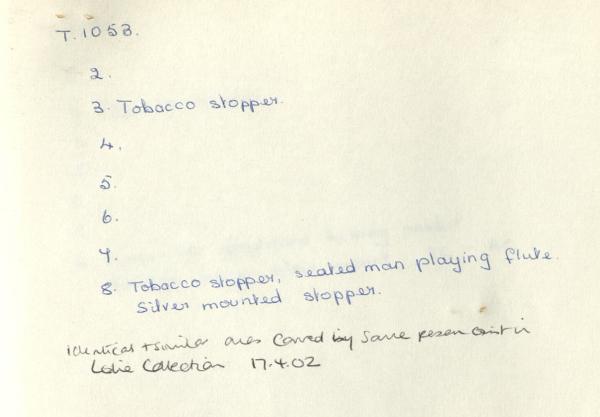 T.1053.
2.
3. Tobacco stopper.
4.
5.
6.
7.
8. Tobacco stopper, seated man playing flute.
Silver mounted stopper.
identical + similar ones Carved by Same person exist in
Collection 17.4.02